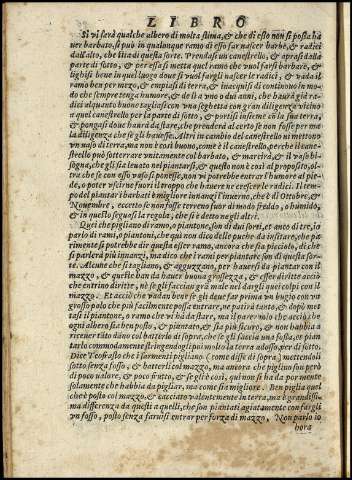 LIBRO
Si vi serà qualche albero di molta stima, & che di esso non si possa ha
uer barbato, si può in qualunque ramo di esso far nascer barbe, & radici
dall'alto, che si tia di questa sorte. Prendasi un canestrello, & aprasi dalla
parte di sotto, & per essa si metta quel ramo che vuol farsi barbare, &
leghisi bene in quel luogo doue si vuol fargli nascer le radici, & vada il
ramo ben per mezo, & empiasi di terra, & inacquisi di continuo in mo-
do che sempre tenga humore, & de lì a vno ò due anni, che haurà già ra-
dici alquanto buone taglisi con vna seghetta con gran diligenza vicino
a quel canestrello per la parte di sotto, & portisi insieme cõ la sua terra,
& pongasi doue haurà da stare, che prenderà di certo se non fosse per ma-
la diligenza che se gli hauesse. Altri in cambio del canestrello vi mettono
vn vaso di terra, ma non è così buono, come è il canestrello, perche il cane-
strello può sotterrare vnitamente col barbato, & marcirà, & il vaso bi-
sogna, che gli sia leuato nel piantarsi, & questo non è così al proposito, ol-
tra che se con esso vaso si ponesse, non vi potrebbe entrar l'humore al pie-
de, ò poter vscirne fuori il troppo che hauere ne e crescerle radici. Il tem-
po del piantar i barbati è migliore innanzi l'inuerno, che è di Ottobre, &
Nouembre, eccetto se non fosse terreno fuor di modo freddo, o humido,
& in questo seguasi la regola, che si è detto ne gli altri.
Quei che pigliano di ramo, o piantone, son di due sorti, et anco di tre, si
parlo di rami, o piantoni, che qui non dico delle puche da insitare, che pa-
rimente si potrebbe dir questa esser ramo, ancora che sia picciolo, di che
si parlerà più innanzi, ma dico che i rami per piantare son di questa sor-
te. Alcune che si tagliano, & agguzzano, per hauersi da piantar con il
mazzo, & queste han da hauer buona grossezza, & esser diritte acciò
che entrino diritte, nè se gli facciangrà male nel dargli quei colpi con il
mazzo. Et acciò che vadan bene se gli deue far prima vn bugio con vn
grosso palo che più facilmente possa entrare, ne patirà tanto, & dopò met-
tasi il piantone, o ramo che vi hà da stare, ma il parer mio che acciò che
ogni albero stia ben posto, & piantato, & sia più sicuro, & non habbia a
riceuer tāto dāno col batterlo di sopra, che se gli faccia una fossa, et pian-
tarlo commodamente stringendogli poi molto la terra adosso, per di sotto.
Dice Teofrasto che i sarmenti pigliano (come disse di sopra) mettendoli
sotto senza fosso, & batterli col mazzo, ma ancora che piglino son però
di poco valore, & poco frutto, & se gli è così, qui non si ha da por mente
solamente che habbia da pigliar, ma come stia migliore. Ben piglia quel
che è posto col mazzo, & cacciato valentemente in terra, ma è grandissi-
ma differenza da questi a quelli, che son piantati agiatamente con fargli
vn fosso, posto senza faruisi entrar per forza di mazzo. Non parlo io
hora